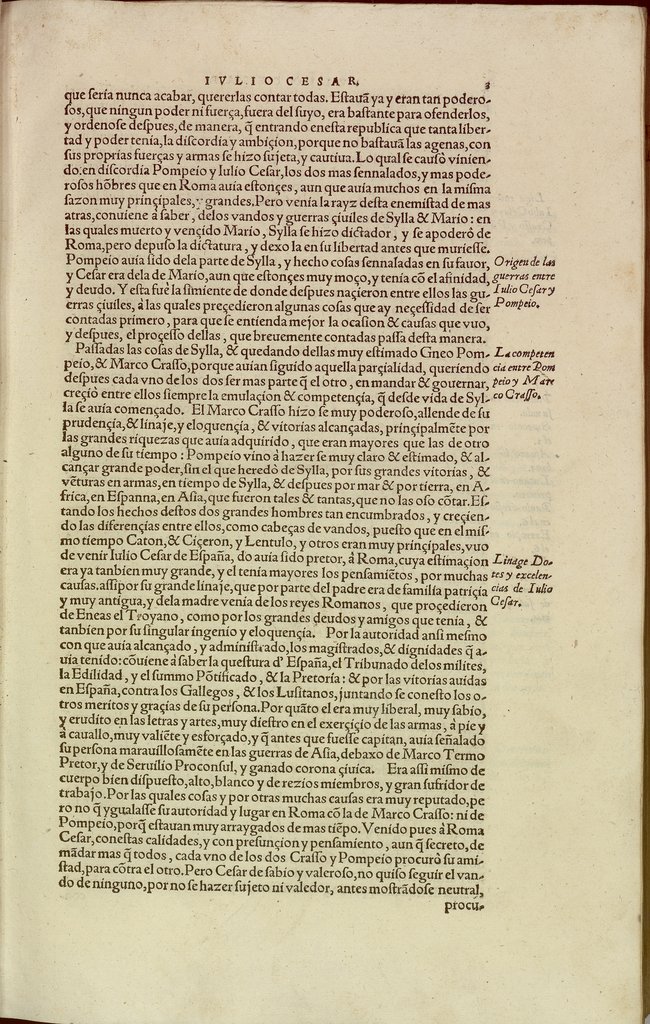 IVLIO CESAR.
3
que ſería nunca acabar, quererlas contar todas. Eſtauã ya y eran tan podero-
ſos, que ningun poder ni fuerça, fuera del ſuyo, era baſtante para ofenderlos,
y ordenoſe deſpues, de manera, q̃ entrando eneſta republica que tanta liber-
tad y poder tenía, la diſcordía y ambiçion, porque no baſtauã las agenas, con
sus proprías fuerças y armas ſe hizo ſujeta, y cautiua. Lo qual ſe cauſò vinien-
do en diſcordia Pompeío y Iulío Ceſar, los dos mas ſennalados, y mas pode-
roſos hõbres que en Roma auía eſtonçes, aun que auía muchos en la miſma
ſazon muy prinçipales, y grandes. Pero venía la rayz deſta enemiſtad de mas
atras, conuiene a ſaber, delos vandos y guerras çíuíles de Sylla & Marío: en
las quales muerto y vençido Marío, Sylla ſe hizo díctador, y ſe apoderò de
Roma, pero depuſo la díctatura, y dexo la en ſu libertad antes que muríeſſe.
Pompeío auía ſido dela parte de Sylla, y hecho coſas ſennaladas en ſu fauor,
y Ceſar era dela de Marío, aun que eſtonçes muy moço, y tenía cõ el afinidad,
y deudo. Y eſta fuè la ſimiente de donde deſpues naçieron entre ellos las gu-
erras çíuiles, à las quales preçedieron algunas coſas que ay neçeſſidad de ſer
contadas primero, para que ſe entienda mejor la ocaſion & cauſas que vuo,
y deſpues, el proçeſſo dellas, que breuemente contadas paſſa deſta manera.
Origen de las
guerras entre
Iulio Ceſar y
Pompeio.
Paſſadas las coſas de Sylla, & quedando dellas muy eſtimado Gneo Pom-
peío, & Marco Craſſo, porque auían ſiguído aquella parçialidad, queriendo
deſpues cada vno de los dos ſer mas parte q̃ el otro, en mandar & gouernar,
creçiò entre ellos ſiempre la emulaçion & competençía, q̃ deſde vida de Syl-
la ſe auía començado. El Marco Craſſo hizo ſe muy poderoſo, allende de ſu
prudençía, & linaje, y eloquençía, & vitorias alcançadas, prínçipalmẽte por
las grandes riquezas que auía adquirido, que eran mayores que las de otro
alguno de ſu tiempo: Pompeío vino à hazer ſe muy claro & eſtimado, & al-
cançar grande poder, ſin el que heredò de Sylla, por ſus grandes vitorías, &
vẽturas en armas, en tiempo de Sylla, & deſpues por mar & por tierra, en A-
frica, en Eſpanna, en Aſia, que fueron tales & tantas, que no las oſo cõtar. Eſ-
tando los hechos deſtos dos grandes hombres tan encumbrados, y creçien-
do las diferençias entre ellos, como cabeças de vandos, pueſto que en el miſ-
mo tiempo Caton, & Çiçeron, y Lentulo, y otros eran muy prinçipales, vuo
de venir Iulío Ceſar de Eſpaña, do auía ſido pretor, à Roma, cuya eſtimaçion
era ya tanbien muy grande, y el tenía mayores los penſamiẽtos, por muchas
cauſas. aſſi por ſu grande linaje, que por parte del padre era de familía patriçia
y muy antígua, y dela madre venía de los reyes Romanos, que proçedieron
de Eneas el Troyano, como por los grandes deudos y amigos que tenía, &
tanbien por ſu ſingular ingenío y eloquençía. Por la autoridad anſi meſmo
con que auía alcançado, y adminiſtrado, los magiſtrados, & dignidades q̃ a-
uía tenido: cõuiene à ſaber la queſtura d' Eſpaña, el Tribunado delos milites,
la Edilidad, y el ſummo Põtificado, & la Pretoría: & por las vitorías auidas
en Eſpaña, contra los Gallegos, & los Luſitanos, juntando ſe coneſto los o-
tros meritos y graçias de ſu perſona. Por quãto el era muy liberal, muy ſabio,
y erudíto en las letras y artes, muy dieſtro en el exerçiçío de las armas, à píe y
à cauallo, muy valiẽte y esforçado, y q̃ antes que fueſſe capitan, auía ſeñalado
ſu perſona marauilloſamẽte en las guerras de Aſia, debaxo de Marco Termo
Pretor, y de Seruilío Proconſul, y ganado corona çiuica. Era aſſi miſmo de
cuerpo bíen díſpueſto, alto, blanco y de rezíos miembros, y gran ſufridor de
trabajo. Por las quales coſas y por otras muchas cauſas era muy reputado, pe
ro no q̃ ygualaſſe ſu autoridad y lugar en Roma cõ la de Marco Craſſo: ni de
Pompeío, porq̃ eſtauan muy arraygados de mas tiẽpo. Venído pues à Roma
Ceſar, coneſtas calidades, y con preſunçion y penſamiento, aun q̃ ſecreto, de
mãdar mas q̃ todos, cada vno de los dos Craſſo y Pompeío procurò ſu ami-
ſtad, para cõtra el otro. Pero Ceſar de ſabio y valeroſo, no quiſo ſeguir el van-
do de ninguno, por no ſe hazer ſujeto ni valedor, antes moſtrãdoſe neutral,
La competen
cia entre Pom
peio y Mar
co Craſſo.
Linage Do-
tes y excelen-
cias de Iulio
Ceſar.
procu-